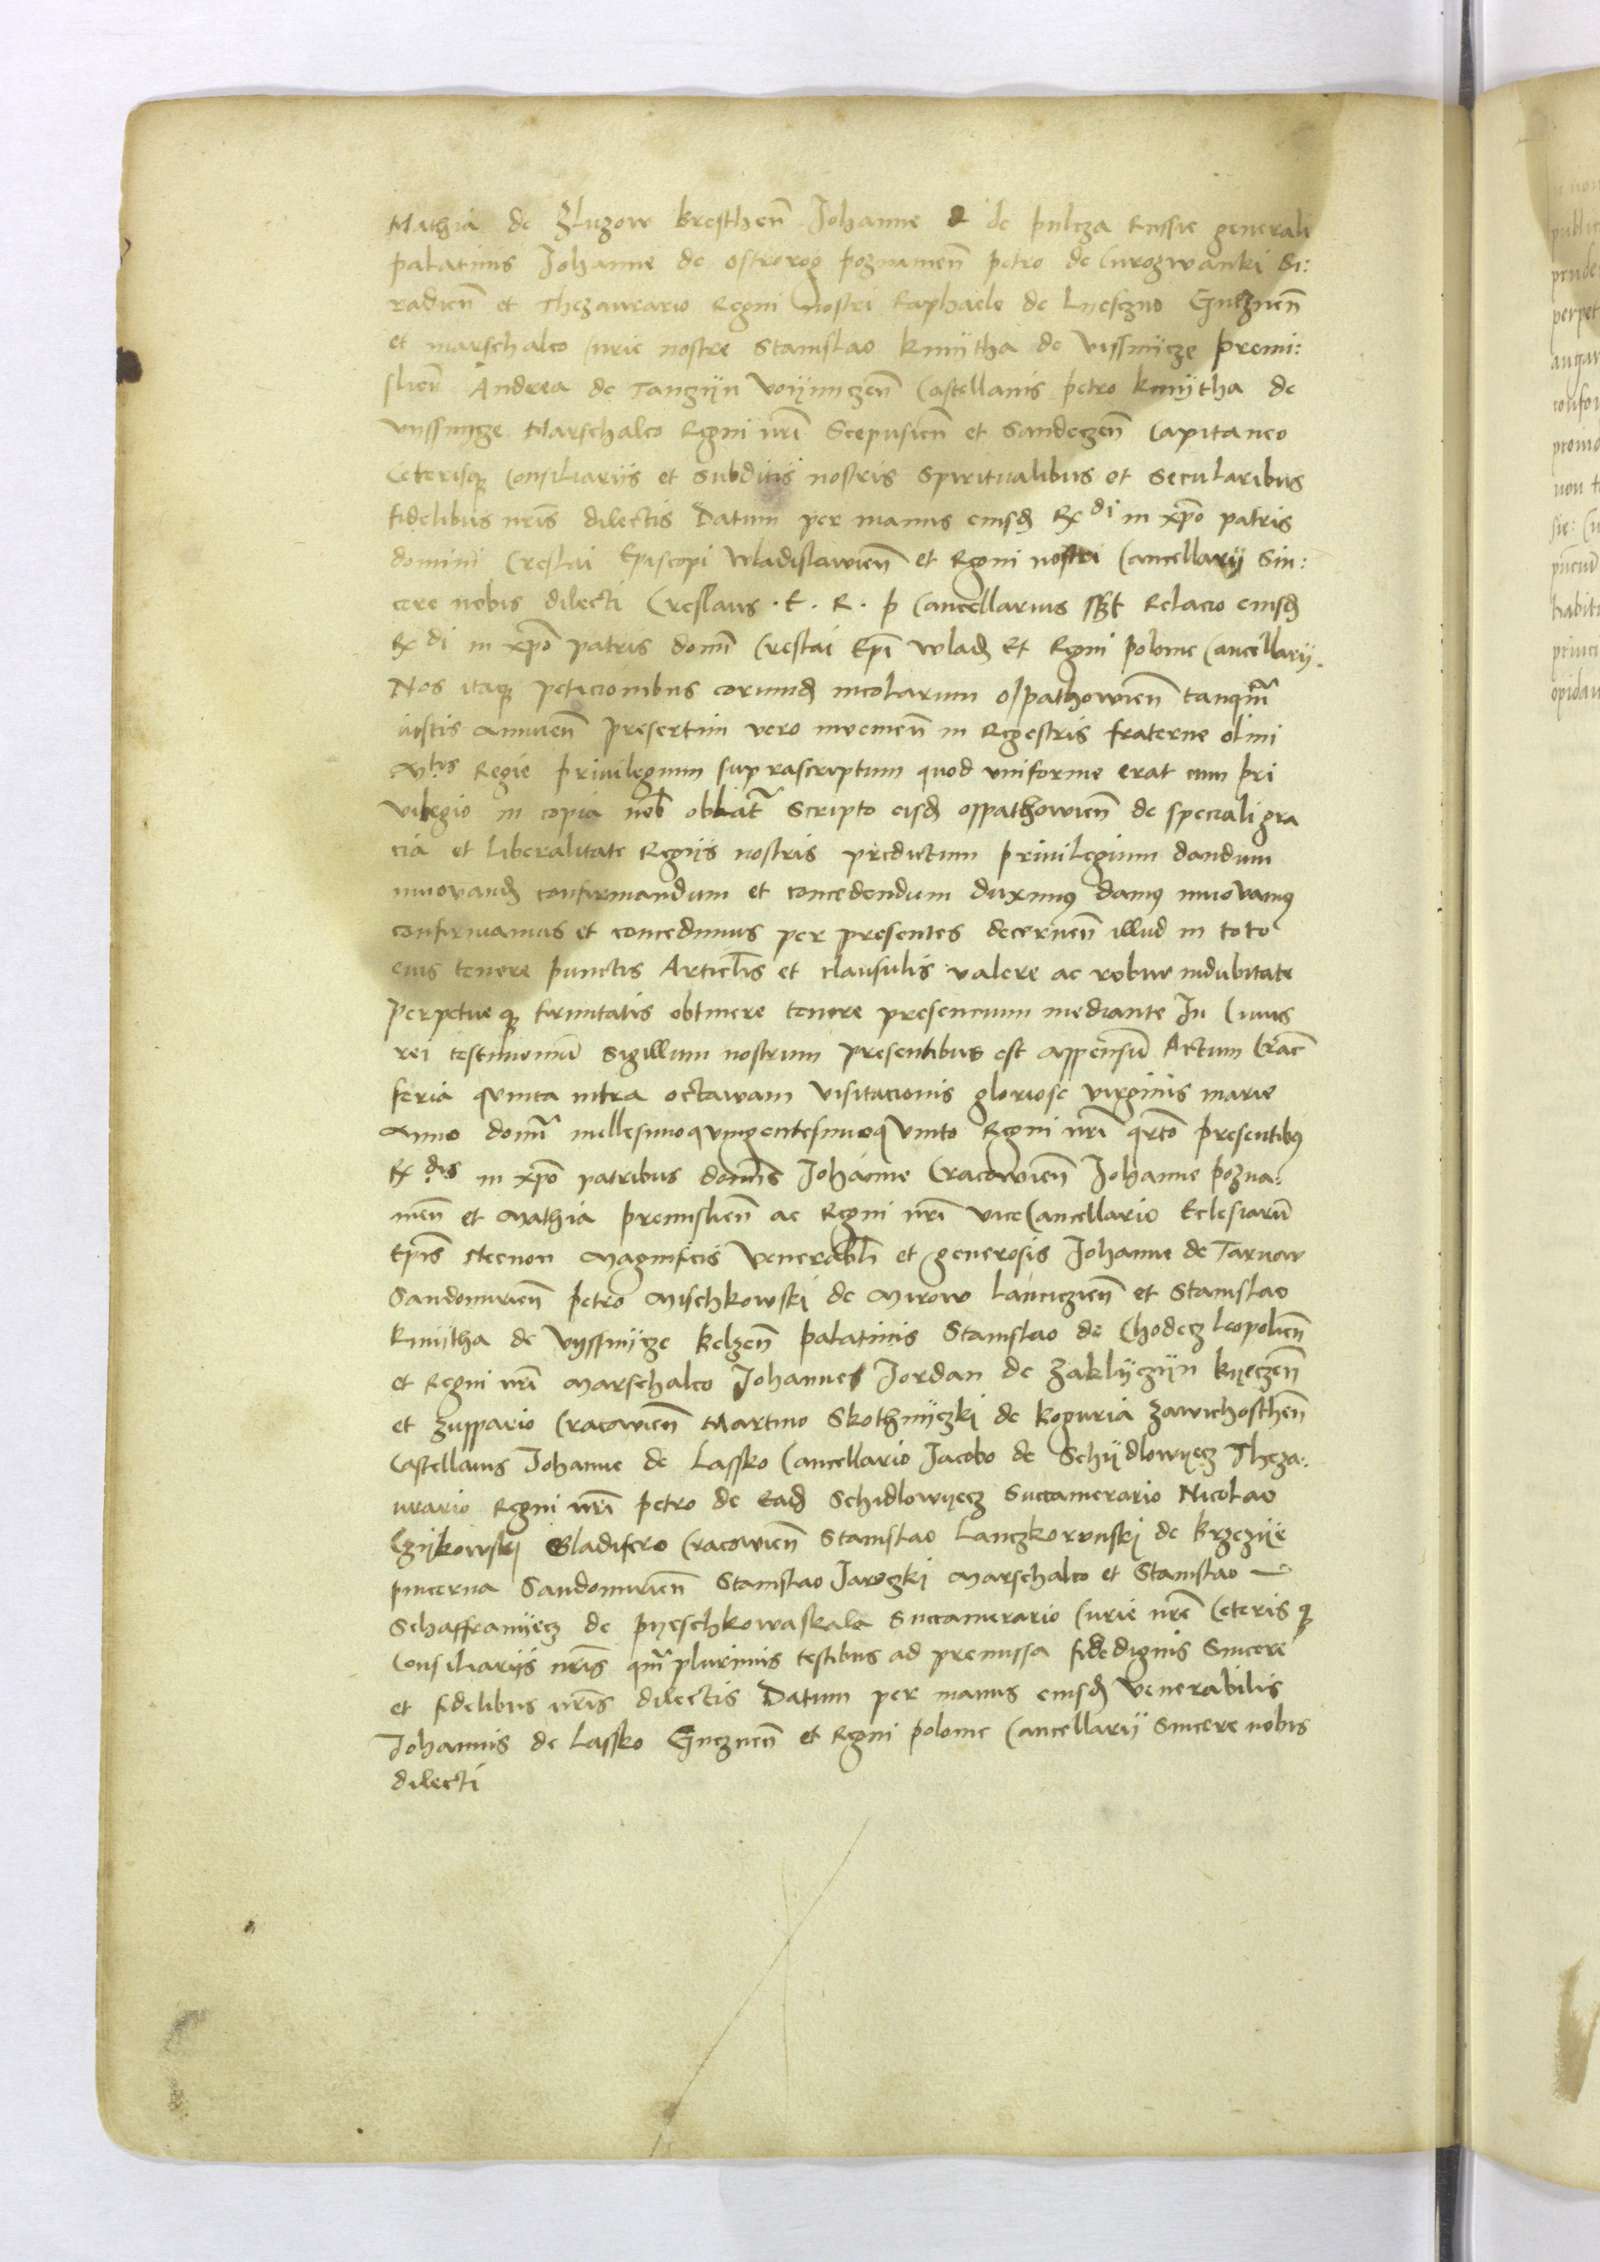 Mathia de Zluzow Bresthen̄ Johanne de pilcza Russie generali
palatinis Johanne de Ostrorog poznanien̄ petro de Curozwanki Si:
radien̄ et Thezaurario Regni nostri Raphaele de Lyesczno Gneznen̄
et marschalco Curie nostre Stanislao kmÿtha de vissnÿcze premi:
slien̄ Andrea de Tanczÿn voÿniczen̄ Castellanis petro kmÿtha de
vyssnycze Marschalco Regni nr̄i Scepusien̄ et Sandeczen̄ Capitaneo
Ceterisqꝫ Consiliariis et subditis nostris Spiritualibus et Secularibus
fidelibus nr̄is dilectis Datum per manus eiusdꝫ Rx di in xp̄o patris
domini Creslai Episcopi Wladislawien̄ et Regni nostri Cancellarij Sin:
cere nobis dilecti Creslaus . E . R . p Cancellarius sst Relacio eiusdꝫ
Rx di in xp̄o patris domī Creslai Epī wladꝫ Et Regni polonie Cancellarij.
Nos itaqꝫ peticionibus eorundꝫ incolarum Opathowien̄ tanqm̄
iustis annuen̄ presertim vero invenien̄ in Regestris fraterne olim
Mtis Regie priuilegium suprascriptum quod vniforme erat cum pri
vilegio in copia nob oblat̄ Scripto eisdꝫ Oppathowien̄ de speciali gra
cia et liberalitate Regiis nostris predictum priuilegium dandum
innouandꝫ confirmandum et concedendum duximꝰ damꝰ innovamꝰ
confirmamus et concedimus per presentes decernen̄ illud in toto
eius tenore punctis Articl̄is et clausulis valere ac robur indubitate
perpetue qꝫ firmitatis obtinere tenore presencium mediante In Cuius
rei testimoniū Sigillum nostrum presentibus est appensū Actum Crac̄
feria qvinta infra octawam visitacionis gloriose virginis marie
Anno domī millesimoqvingentesimoqvinto Regni nr̄i qrto presentibꝰ
Rx dis in xp̄o patribus domīs Johanne Cracowien̄ Johanne pozna:
nien̄ et Mathia premislien̄ ac Regni nr̄i viceCancellario Eclesiarū
Ep̄is Necnon Magnificis venerabl̄i et generosis Johanne de Tarnow
Sandomirien̄ petro Mischkowski de Mirow lanciczien̄ et Stanislao
kmitha de vyssnÿcze Belzen̄ palatinis Stanislao de Chodecz leopolien̄
et Regni nr̄i Marschalco Johannes Jordan de Zaklÿczÿn byeczen̄
et Zuppario Cracowien̄ Martino Skothnÿczki de boguria Zawichosthen̄
Castellanis Johanne de Lassko Cancellario Jacobo de Schÿdlowyecz Theza:
urario Regni nr̄i petro de Eadꝫ Schidlowyecz Succamerario Nicolao
Czÿkowski Gladifero Cracowien̄ Stanislao Lanczkorunski de Brzezÿe
pincerna Sandomirien̄ Stanislao Jaroczki Marschalco et Stanislao
Schaffranÿecz de pyeschkowaskala Succamerario Curie nr̄e Ceteris qꝫ
Consiliariis nr̄is qm̄ plurimis testibus ad premissa fidedignis Sincere
et fidelibus nr̄is dilectis Datum per manus eiusdꝫ venerabilis
Johannis de lassko Gneznen̄ et Regni polonie Cancellarij Sincere nobis
dilecti